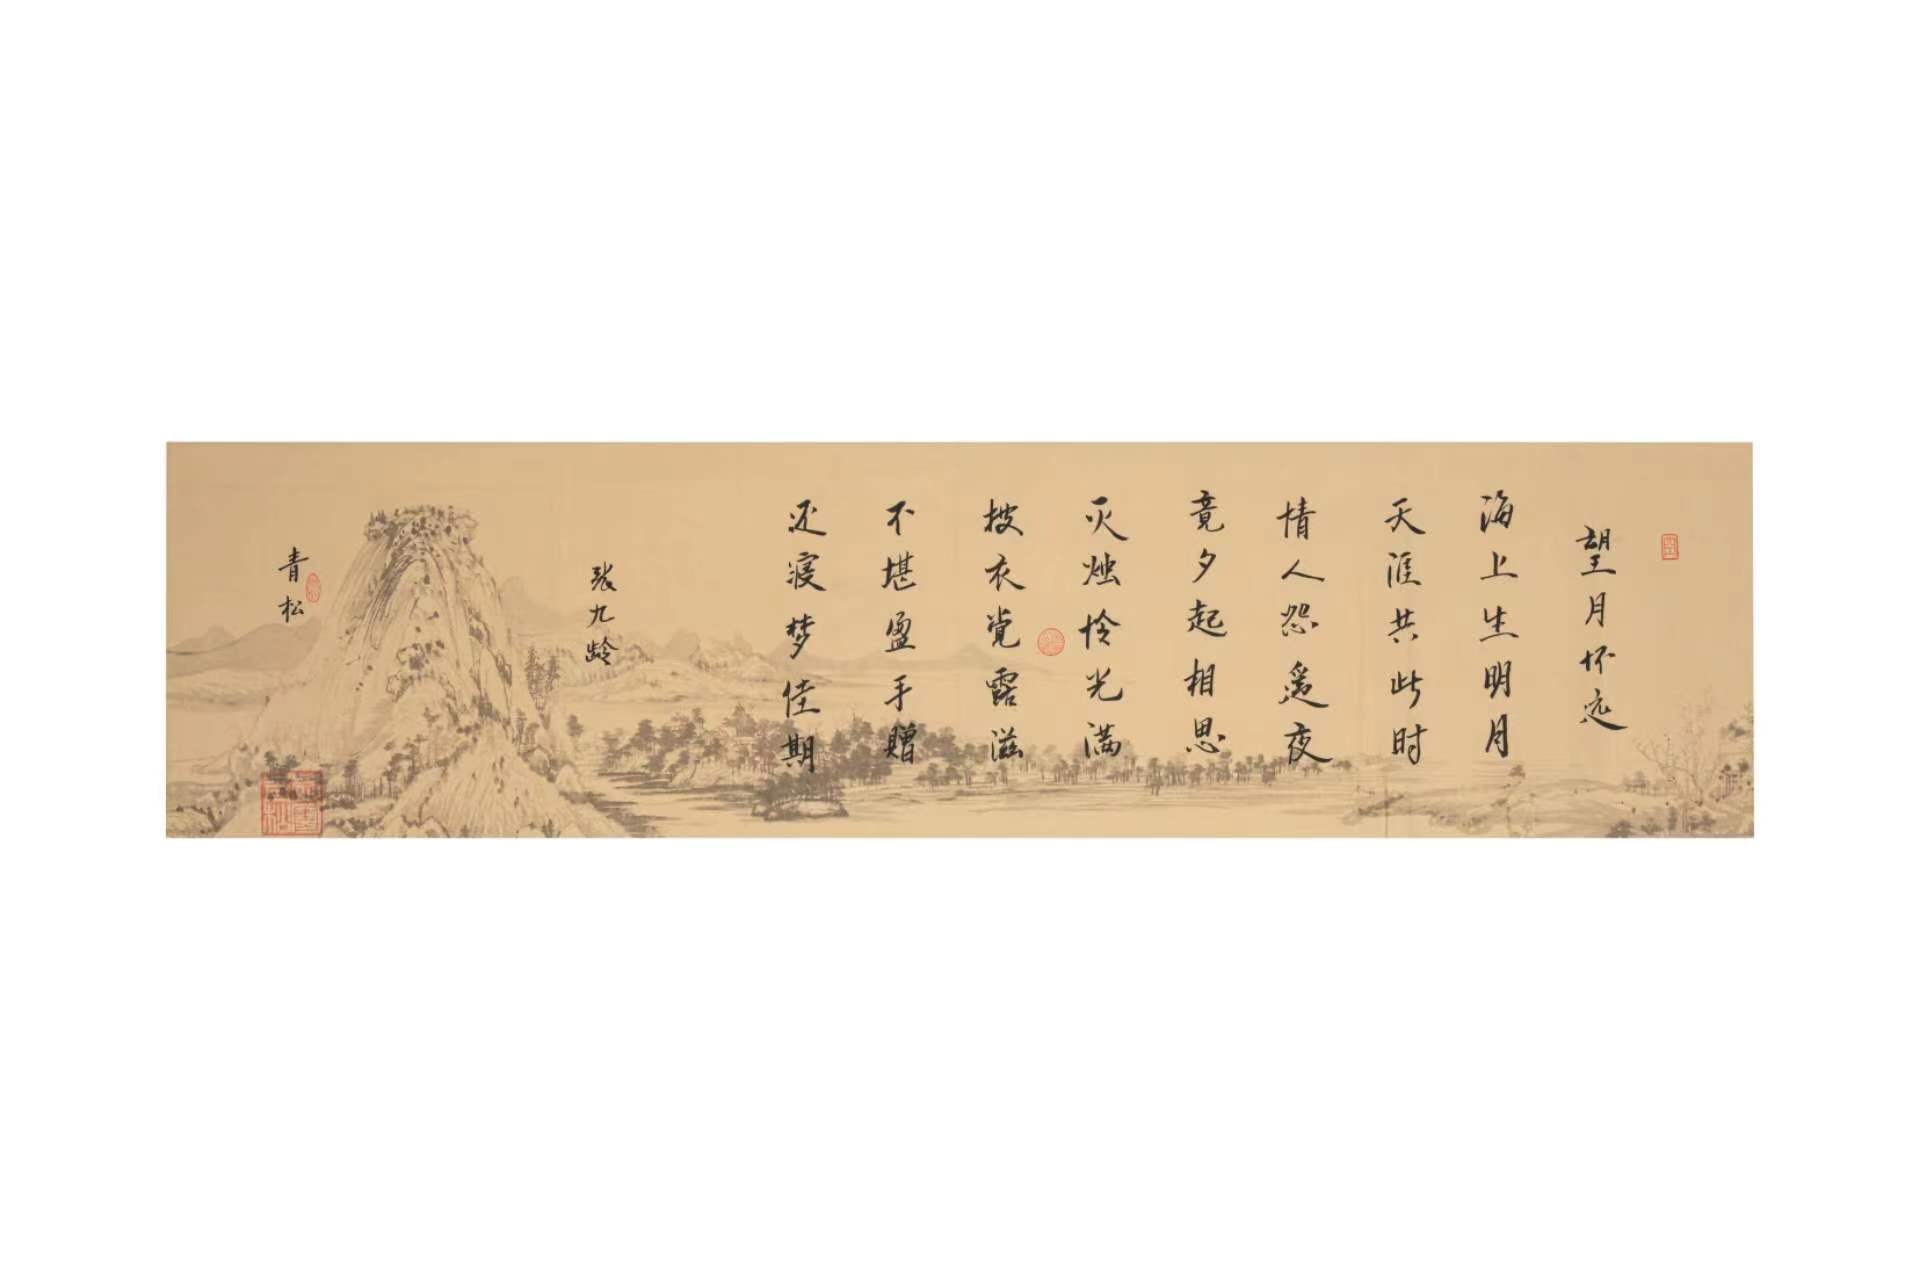 望月怀远
海上生明月
天涯共此时
情人怨遥夜
竟夕起相思
灭烛怜光满
披衣觉露滋
不堪盈手赠
还寝梦佳期
张九龄
青松